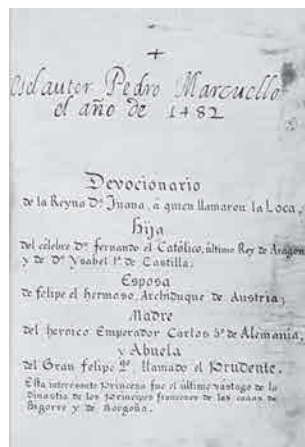 Es el autor Pedro Marcuello
el año de 1482
Devocionario
de la Reyna Dª Juana, á quien llamaron la Loca,
Hija
del célebre Dⁿ fernando el Católico, último Rey de Aragon
y de Dª Ysabel 1ª de Castilla.
Esposa
de felipe el hermoso, Archiduque de Austria;
Madre
del heroico Emperador Carlos 5º de Alemania,
y Abuela
del Gran felipe 2º llamado el Prudente.
Esta interesante princesa fue el último vastago de la
dinastia de los principes franceses de las casas de
Bigorre y de Borgoña.